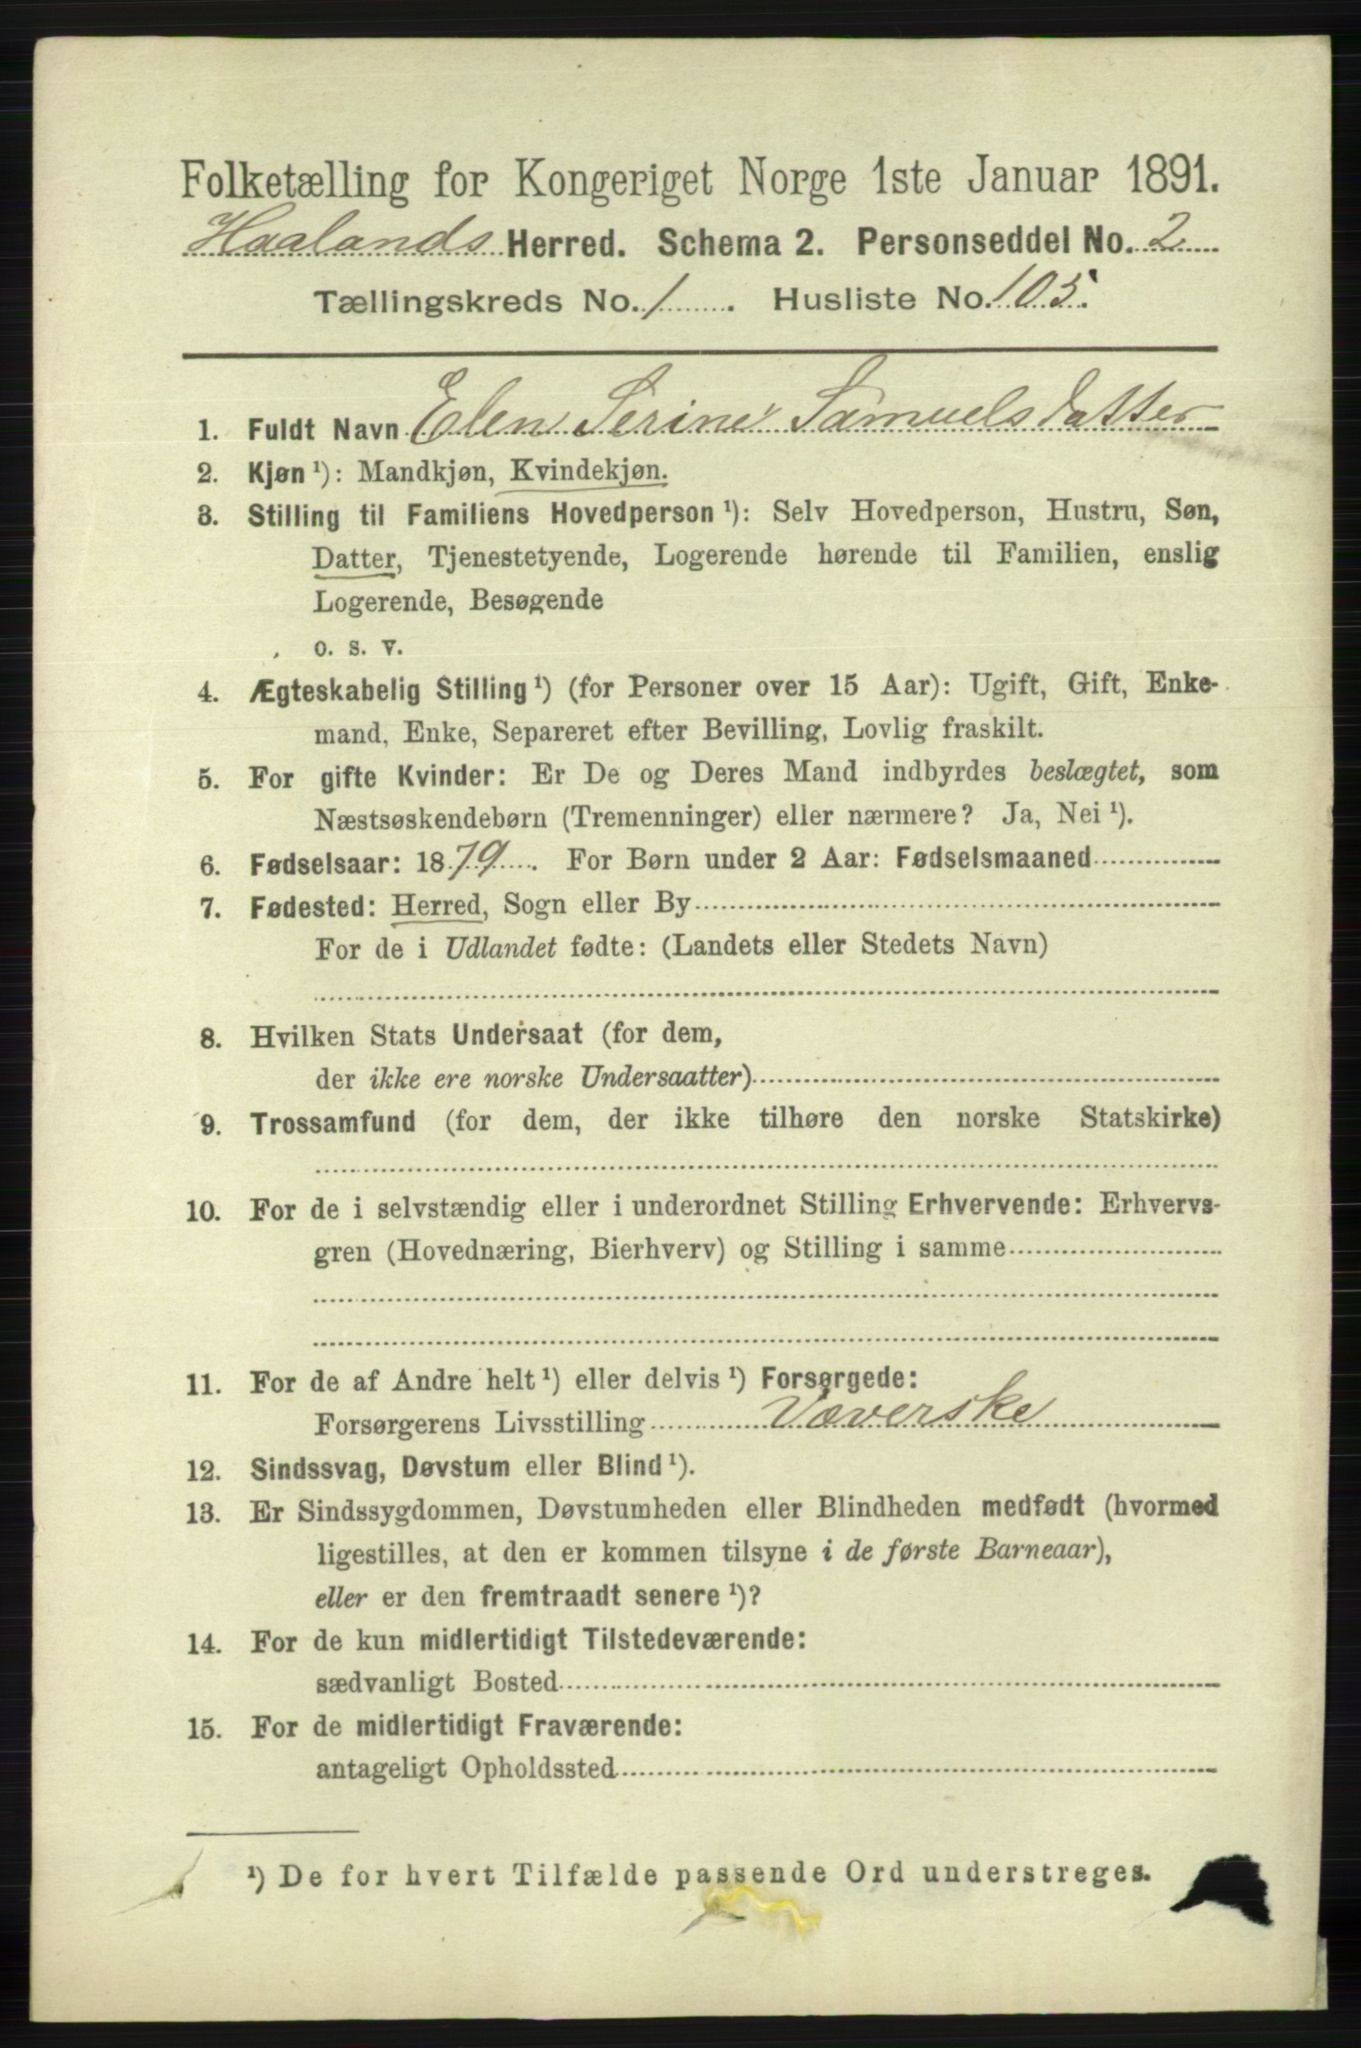 Folketælling for Kongeriget Norge 1ste Januar 1891.
Haalands Herred. Schema 2. Personseddel No. 2
Tællingskreds No. 1. Husliste No. 105.
1. Fuldt Navn Elen Serine Samuelsdatter
2. Kjøn ¹): Mandkjøn, Kvindekjøn.
3. Stilling til Familiens Hovedperson ¹): Selv Hovedperson, Hustru, Søn,
Datter, Tjenestetyende, Logerende hørende til Familien, enslig
Logerende, Besøgende
o. s. v.
4. Ægteskabelig Stilling ¹) (for Personer over 15 Aar): Ugift, Gift, Enke-
mand, Enke, Separeret efter Bevilling, Lovlig fraskilt.
5. For gifte Kvinder: Er De og Deres Mand indbyrdes beslægtet, som
Næstsøskendebørn (Tremenninger) eller nærmere? Ja, Nei ¹).
6. Fødselsaar: 1879. For Børn under 2 Aar: Fødselsmaaned
7. Fødested: Herred, Sogn eller By
For de i Udlandet fødte: (Landets eller Stedets Navn)
8. Hvilken Stats Undersaat (for dem,
der ikke ere norske Undersaatter)
9. Trossamfund (for dem, der ikke tilhøre den norske Statskirke)
10. For de i selvstændig eller i underordnet Stilling Erhvervende: Erhvervs-
gren (Hovednæring, Bierhverv) og Stilling i samme
11. For de af Andre helt ¹) eller delvis ¹) Forsørgede:
Forsørgerens Livsstilling Væverske
12. Sindssvag, Døvstum eller Blind ¹).
13. Er Sindssygdommen, Døvstumheden eller Blindheden medfødt (hvormed
ligestilles, at den er kommen tilsyne i de første Barneaar),
eller er den fremtraadt senere ¹)?
14. For de kun midlertidigt Tilstedeværende:
sædvanligt Bosted
15. For de midlertidigt Fraværende:
antageligt Opholdssted
¹) De for hvert Tilfælde passende Ord understreges.